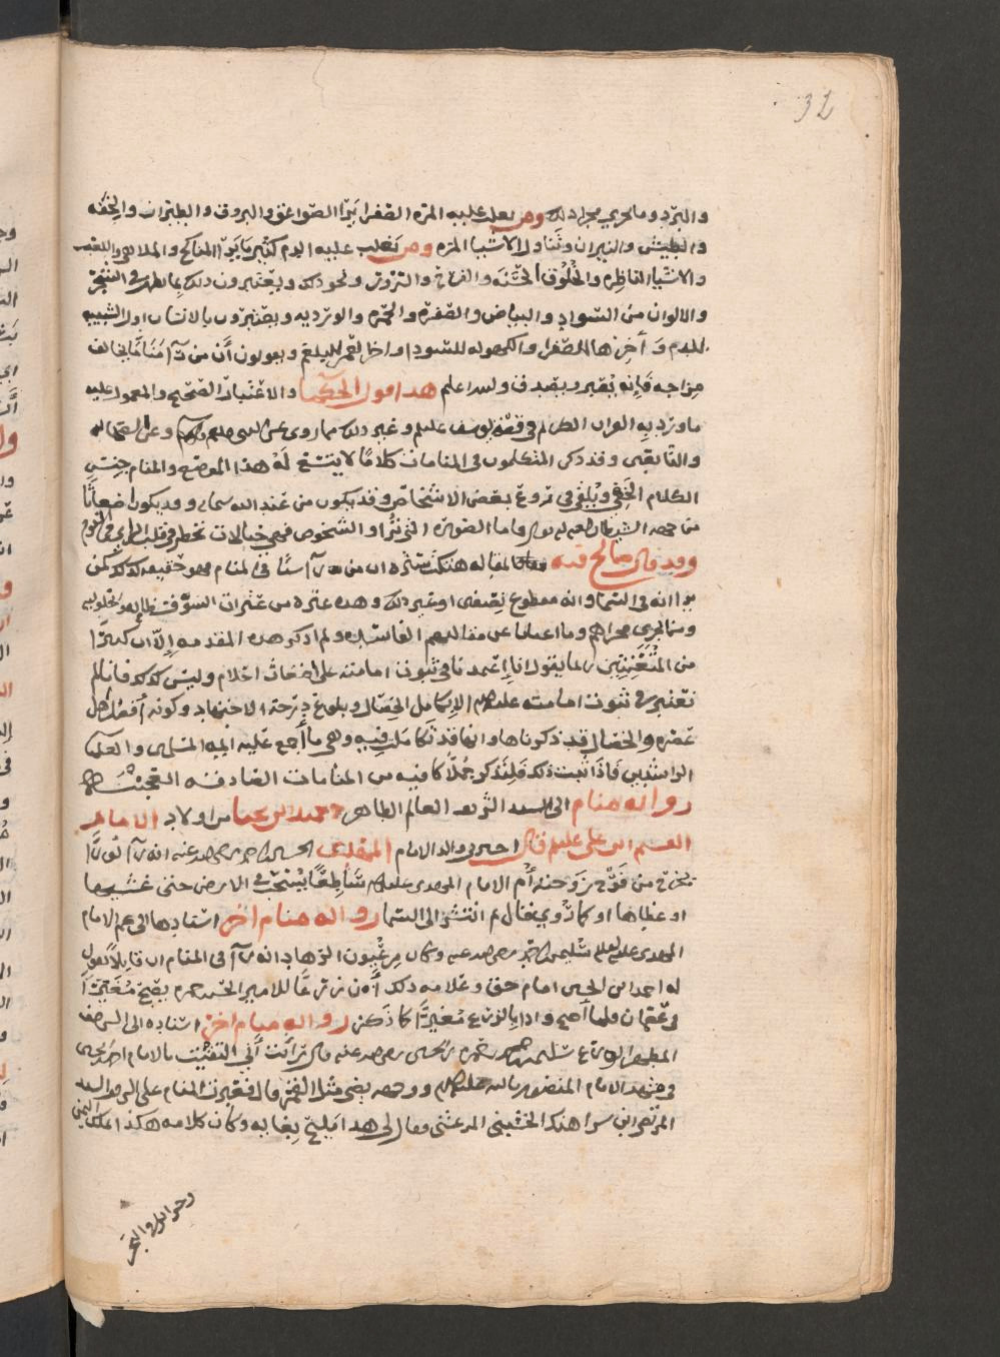 32
والبرد وما جرى مجرا ذلك ومن يغلب عليه المره الصفرا يرا الصواعق والبروق والطيران والخفه
والطيش والنيران وتناول الاشيا المره ومن يغلب عليه الدم كثير ما يرا المناكح والملاهي واللعب
والاشيا الناظره والخلوق الحسنه والفراخ والتزوق ونحو ذلك ويعتبرون ذلك بما يظهر في الشجر
والالوان من السواد والبياض والصفره والحمره والورديه ويعتبرون بالانسان اول الشبيبه
للدم وآخرها للصفرا والكهوله للسودا واخر العمر للبلغم ويقولون أن من رآ مناما يخالف
مزاجه فإنه يعبر ويصدق والله اعلم هذا قول الحكما والاعتبار الصحيح والمعمول عليه
ما ورد به القران الكريم في قصة يوسف عليلم وغير ذلك مما روى عن النبي صلعم وعن الصحابه
والتابعين وقد ذكر المتكلمون في المنامات كلاما لا يتسع له هذا الموضع والمنام جنس
الكلام الخفي ويلقى في روع بعض الاشخاص وقد يكون من عند الله سبحانه وقد يكون اضغاثا
من جهة الشيطان لعنه الله واما الصوره التي ترا والشخوص فهي خيالات تخطر في قلب الراي في النوم
وقد قال صالح قبه مقاله هتك ستره ان من رآ شيا في المنام فهو حقيقه كذلك كمن
يرا انه في السما وانه مقطوع نصفين او غير ذلك وهذه عثره من عثرات السوفسطاييه
ومن يجري مجراهم وما اغنانا عن مقالتهم الفاسده ولم اذكر هذه المقدمه إلا ان كثيرا
من المتعنتين ربما يقول انا إعتمدنا في ثبوت امامته على اضغاث احلام وليس كذلك فإنا لم
نعتبر في ثبوت امامته عليلم الا بكامل الخصال وبلوغ درجة الاجتهاد وكونه أفضل اهل
عصره والخصال قد ذكرناها وانها قد تكاملت فيه وهي ما أجمع عليه ايمة المسلمين والعلما
الراشدين فإذا ثبت ذلك فلنذكر جملا كافيه من المنامات الصادقه العجيبه
روايه منام الى السيد الشريف العالم الطاهر محمد بن عباس من اولاد الامام
القسم ابن علي عليلم قال اخبرني والد الامام المهدي الحسين بن احمد رضي الله عنه انه رآ نورا
يخرج من فرج زوجته أم الامام المهدي عليلم ساطعا يسيح في الارض حتى غشيها
او غطاها او كما روي فقال ثم انتشر الى السما روايه منام اخر اسنادها الى عم الامام
المهدي عليلم سليمن بن احمد رضي الله عنه وكان من عيون الزهاد انه رآ في المنام ان قايلا يقول
له احمد ابن الحسين امام حق وعلامه ذلك أن زرعا للامير الحسن بن حمزه يصبح مغيرا
في عثمان فلما اصبح واذا بالزرع مغيرا كما ذكر روايه منام اخر اسناده الى الشريف
سليمن بن حمزه بن الحسين رضي الله عنه قال رايت أني التقيت بالامام احمد بن الحسين
في مشهد الامام المنصور بالله عليلم ووجهه يضي مثل القمر قال فعبرت المنام على الشريف السيد
المرتضى ابن سراهنك الحسيني المرعشي فقال لي هذا مليح بغايه وكان كلامه هكذا